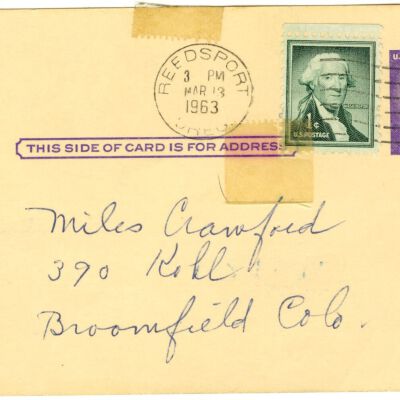 REEDSPORT
3 PM
MAR 13
1963
OREG.
1¢
U.S. POSTAGE
U.
THIS SIDE OF CARD IS FOR ADDRESS
Miles Crawford
390 Kohl
Broomfield Colo.